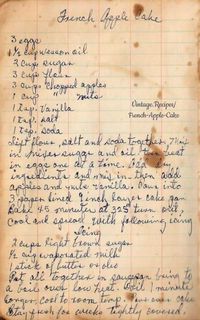 French Apple Cake
3 eggs
1½ cup wesson oil
2 cups sugar
3 cups flour
3 cups chopped apples
1 cup " nuts
1 tsp. Vanilla
1 tsp. salt
1 tsp. soda
Vintage Recipes/
French-Apple-Cake
Sift flour, salt and soda together. Mix
in mixer sugar and oil, then beat
in eggs one at a time. Add dry
ingredients and mix in then add
apples and nuts vanilla. Pour into
3 paper lined 9 inch layer cake pan
Bake 45 minutes at 325 turn out,
Cool and spread with following icing
Icing
2 cups light brown sugar
½ cup evaporated milk
1 stick of butter or oleo
Put all together in saucepan bring to
a boil over low heat. Boil 1 minute
longer, cool to room temp. cake
stay fresh for weeks tightly covered.